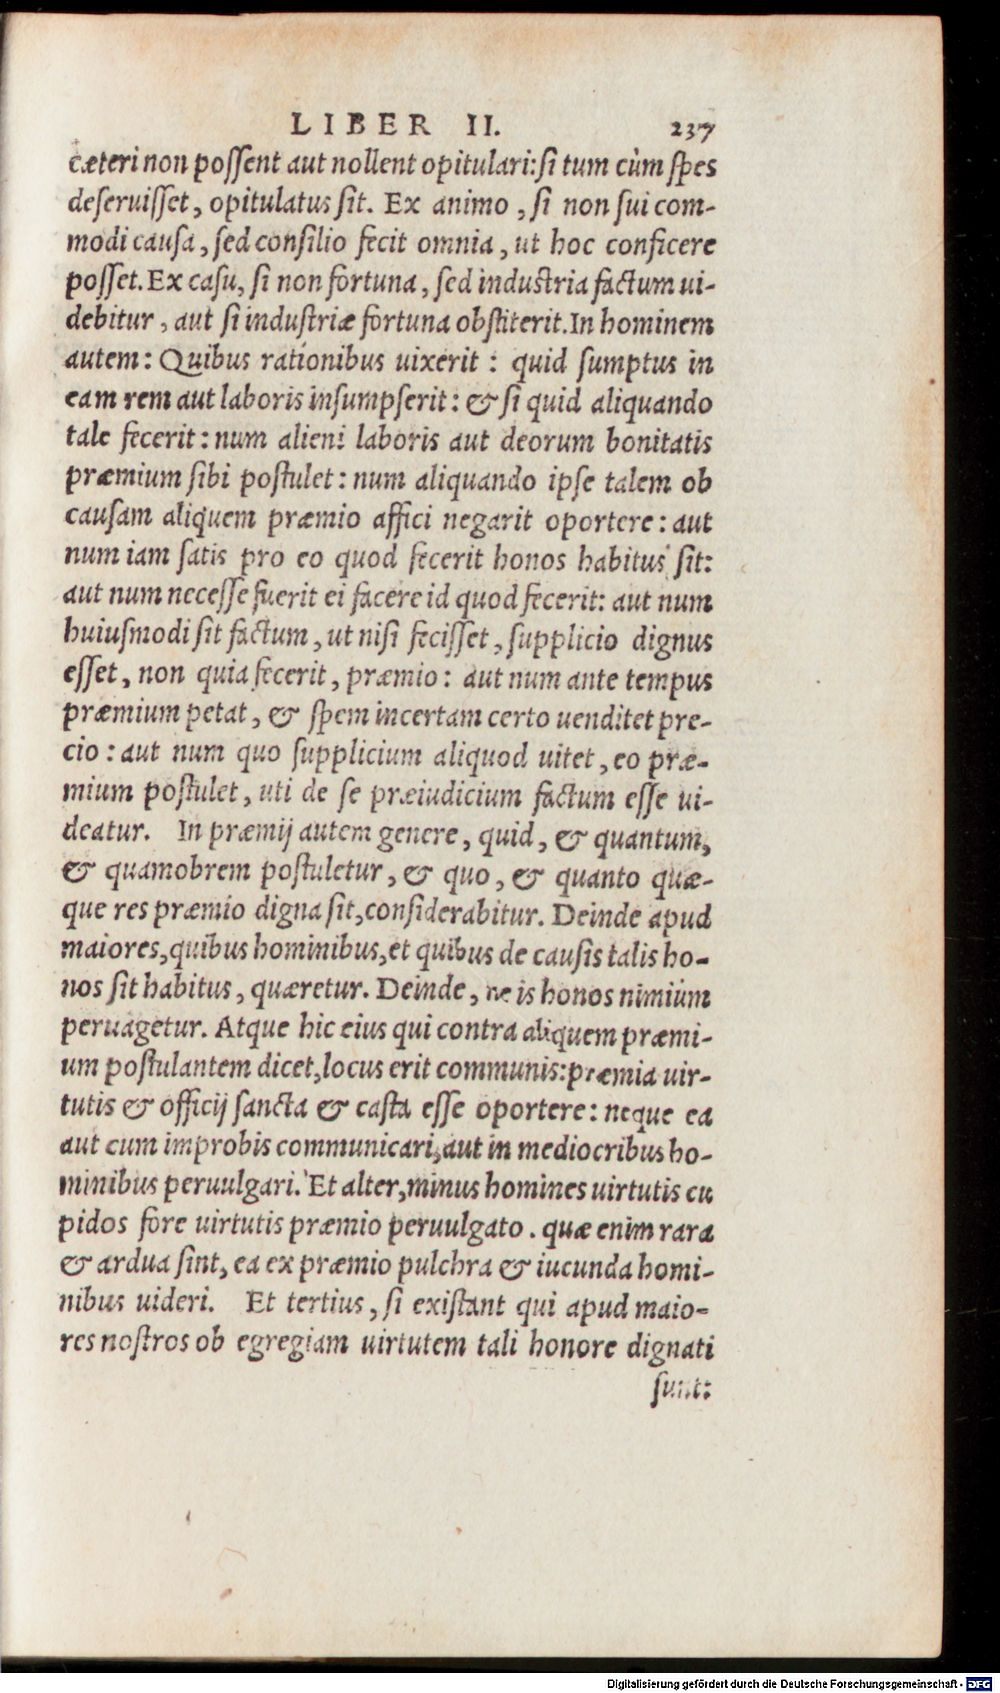 LIBER II. 237
cæteri non possent aut nollent opitulari: si tum cùm spes
deseruisset, opitulatus sit. Ex animo, si non sui com-
modi causa, sed consilio fecit omnia, ut hoc conficere
posset. Ex casu, si non fortuna, sed industria factum ui-
debitur, aut si industriæ fortuna obstiterit. In hominem
autem: Quibus rationibus uixerit: quid sumptus in
eam rem aut laboris insumpserit: & si quid aliquando
tale fecerit: num alieni laboris aut deorum bonitatis
præmium sibi postulet: num aliquando ipse talem ob
causam aliquem præmio affici negarit oportere: aut
num iam satis pro eo quod fecerit honos habitus sit:
aut num necesse fuerit ei facere id quod fecerit: aut num
huiusmodi sit factum, ut nisi fecisset, supplicio dignus
esset, non quia fecerit, præmio: aut num ante tempus
præmium petat, & spem incertam certo uenditet pre-
cio: aut num quo supplicium aliquod uitet, eo præ-
mium postulet, uti de se præiudicium factum esse ui-
deatur. In præmij autem genere, quid, & quantum,
& quamobrem postuletur, & quo, & quanto quæ-
que res præmio digna sit, considerabitur. Deinde apud
maiores, quibus hominibus, et quibus de causis talis ho-
nos sit habitus, quæretur. Deinde, ne is honos nimium
peruagetur. Atque hic eius qui contra aliquem præmi-
um postulantem dicet, locus erit communis: præmia uir-
tutis & officij sancta & casta esse oportere: neque ea
aut cum improbis communicari, aut in mediocribus ho-
minibus peruulgari. Et alter, minus homines uirtutis cu
pidos fore uirtutis præmio peruulgato. quæ enim rara
& ardua sint, ea ex præmio pulchra & iucunda homi-
nibus uideri. Et tertius, si existant qui apud maio-
res nostros ob egregiam uirtutem tali honore dignati
sunt:
Digitalisierung gefördert durch die Deutsche Forschungsgemeinschaft - DFG